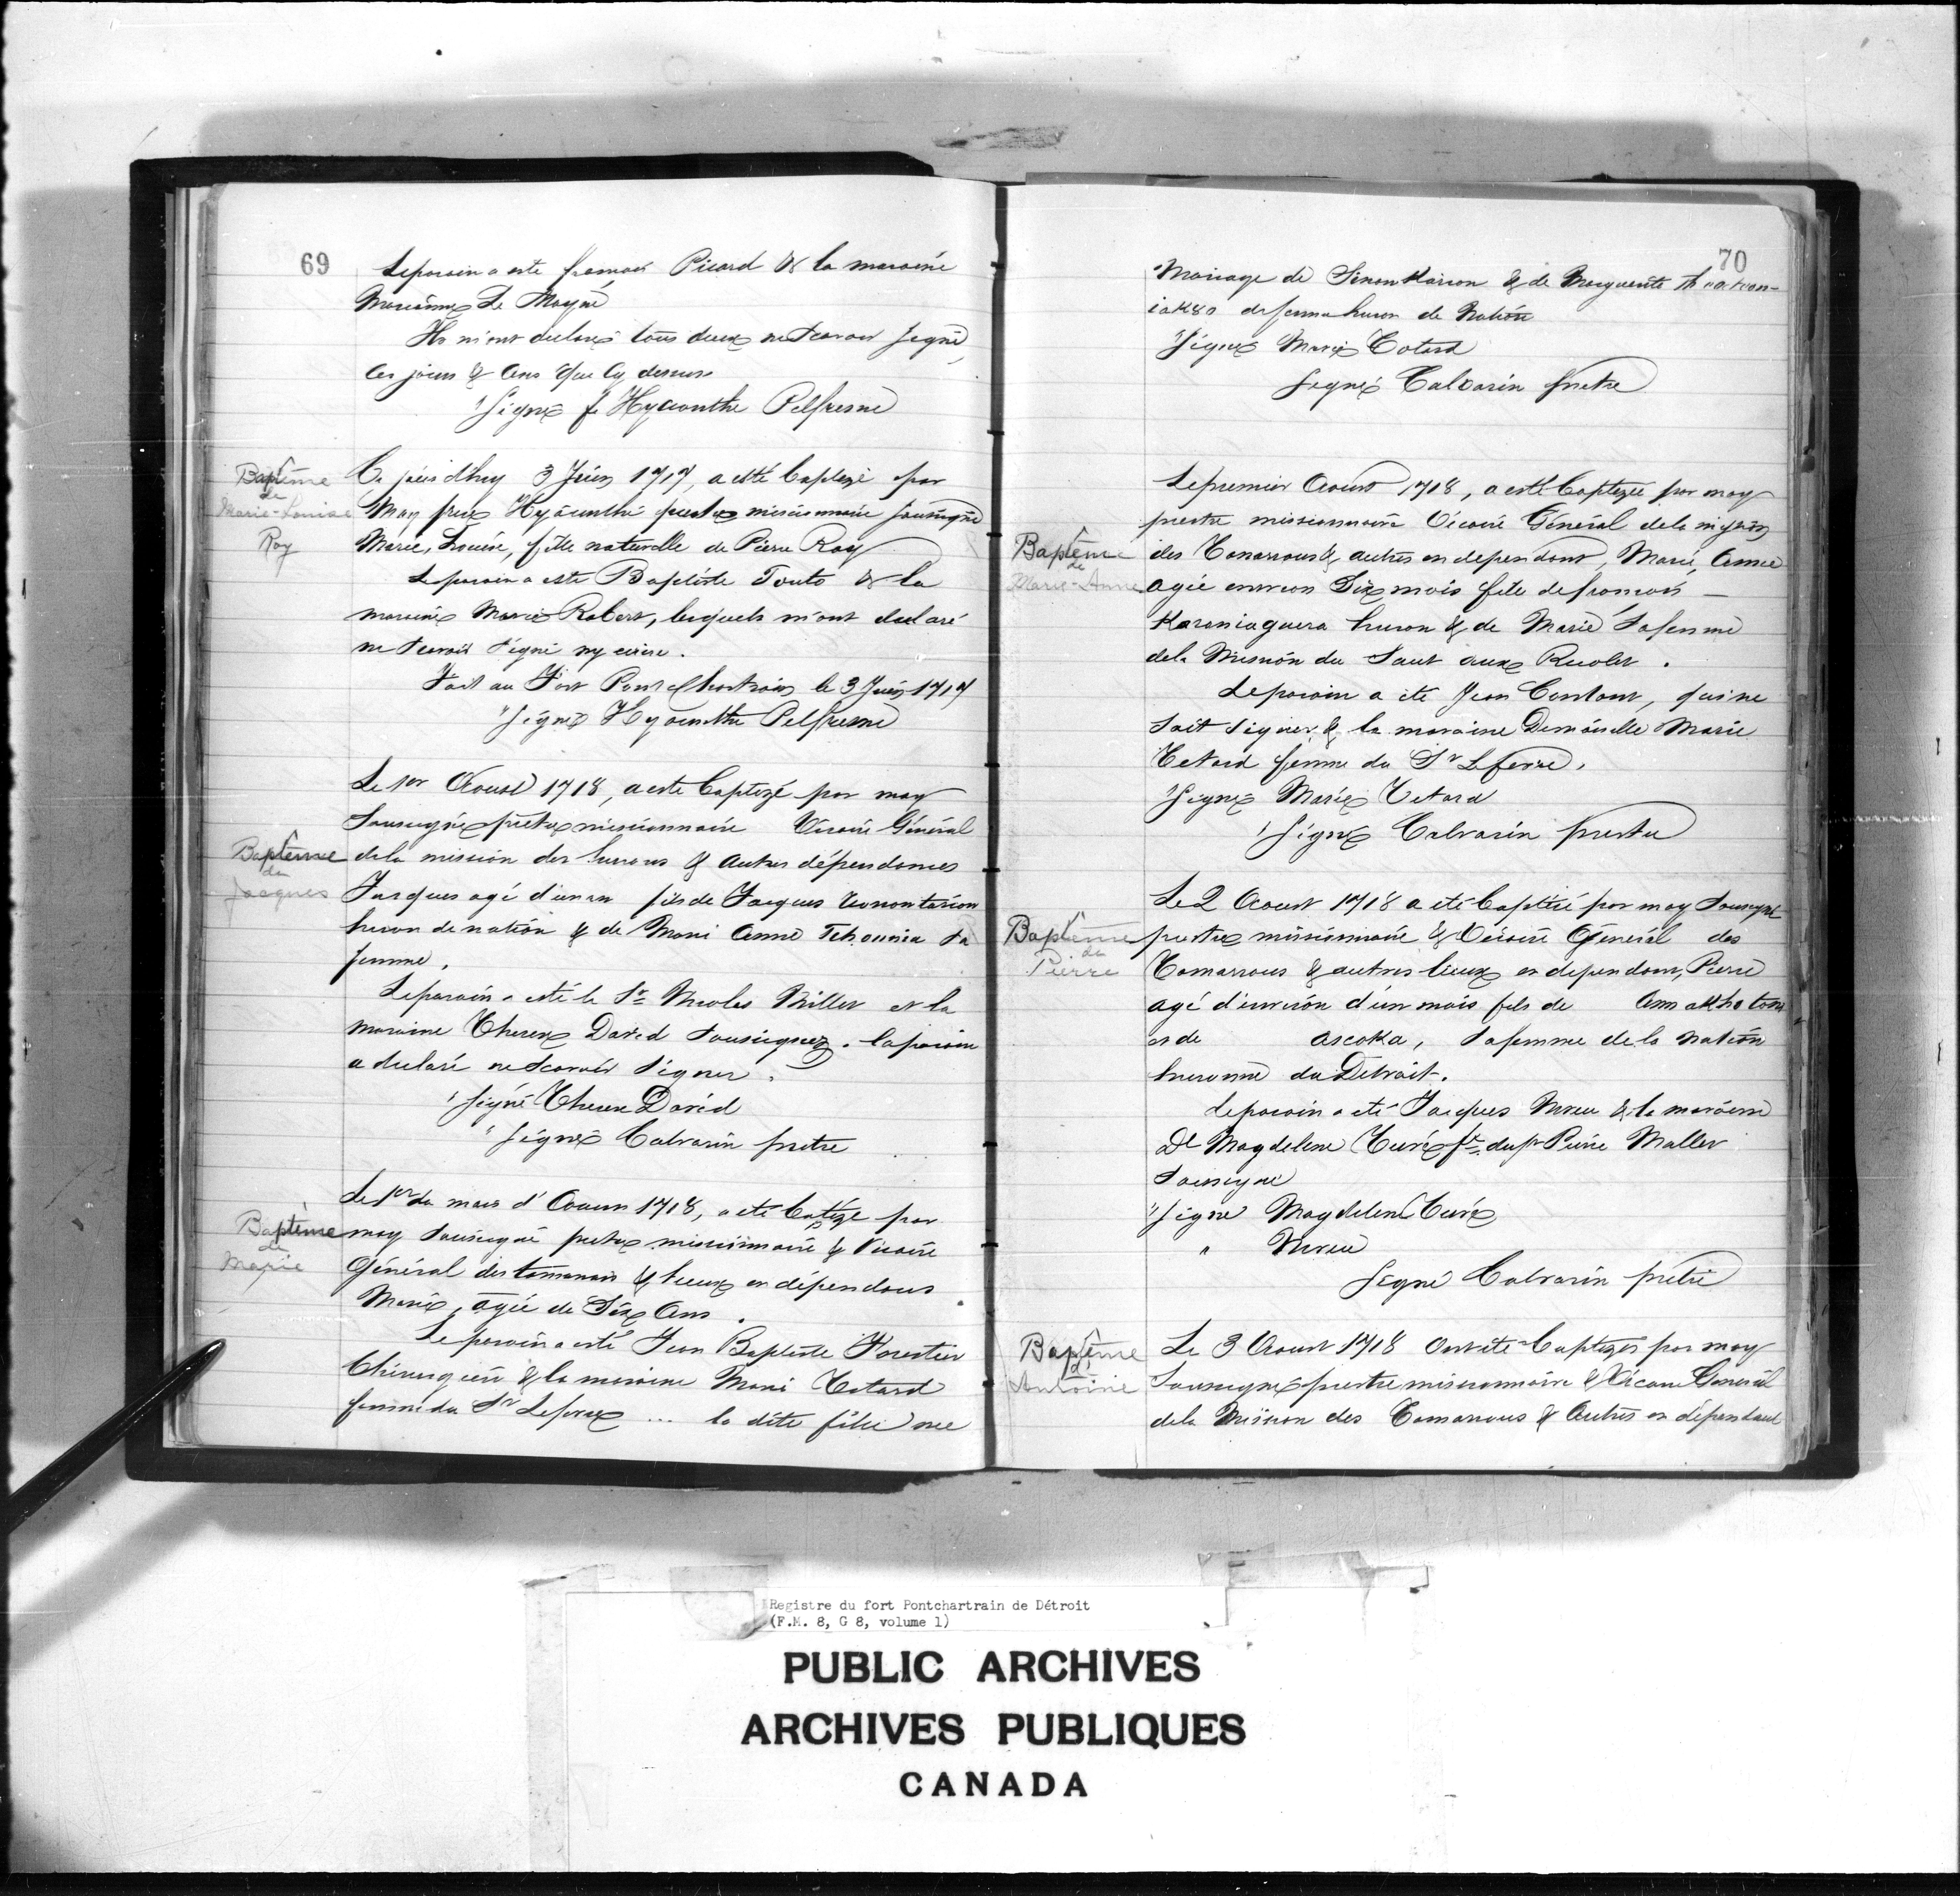 69
Le parain a esté françois Picard & la maraine
Marianne Le Moyne
Ils m'ont declaré tous deux ne scavoir signé
Ces jours & ans que Cy dessus
"Signé f. Hyacinthe Pelfresne
Baptême
de
Marie-Louise
Roy
Ce jourdhuy 3 Juin 1717, a esté baptizé par
Moy frere Hyacinthe prestre missionnaire soussigné
Marie, Louise, fille naturelle de Pierre Roy
Le parain a este Baptiste Touto & la
maraine Marie Robert, lesquels m'ont declaré
ne scavoir signé ny ecrire.
Fait au Fort Pontchartrain le 3 Juin 1717
"Signé Hyacinthe Pelfresne
Le 1er Aoust 1718, a este baptizé par moy
Baptême
de
Jacques
Soussigné prestre missionnaire Vicaire Général
de la mission des hurons & autres dépendances
Jacques agé d'un an fils de Jacques
huron de nation & de Marie Anne Tchounia sa
femme.
Le parain a esté le Sr Nicolas Millet et la
maraine Therese David soussignez. le parain
a declaré ne scavoir signer.
"Signé Therese David
"Signé Calvarin prêtre
Baptême
de
Marie
Le 1er du mois d'Aoust 1718, a été batizé par
moy soussigné prestre missionnaire & Vicaire
Général des tamarois & lieux en dépendans
Marie, agée de Six Ans.
Le parain a esté Jean Baptiste Forestier
Chirurgien & la maraine Marie Cotard
femme du Sr Lefevre ... la dite fille nee
70
Mariage de Simon & de Marguerite
iak8o sa femme huron de Nation
"Signé Marie Cotard
Signé Calvarin prêtre
Le premier Aoust 1718, a esté baptizée par moy
prestre missionnaire Vicaire Général de la mission
Baptême
de
Marie-Anne
des Tamarrous & autres en dependant, Marie, Anne
agée environ Six mois fille de francois —
Karoniaguera huron & de Marie Sa femme
de la Mission du Saut aux Recolet.
Le parain a été Jean Contant, qui ne
sait signer & la maraine Demoiselle Marie
Cetard femme du Sr Lefevre,
"Signé Marie Cetard
"Signé Calvarin prestre
Baptême
de
Pierre
Le 2 Aoust 1718 a été baptisé par moy soussigné
prestre missionnaire & Vicaire Général des
Tamarrous & autres lieux en dependant, Pierre
agé d'environ d'un mois fils de
et de ascoka, Sa femme de la nation
huronne du Detroit.
Le parain a été Jacques & la maraine
Dle Magdelene Curé fe du Sr Pierre Mallet
Soussigné
"Signé Magdelene Curé
"
Signé Calvarin prêtre
Baptême
d'
Antoine
Le 3 Aoust 1718 Ont été baptizés par moy
Soussigné prestre missionnaire & Vicaire Général
de la Mission des Tamarrous & Autres en dépendant
Registre du fort Pontchartrain de Détroit
(F.M. 8, G 8, volume 1)
PUBLIC ARCHIVES
ARCHIVES PUBLIQUES
CANADA